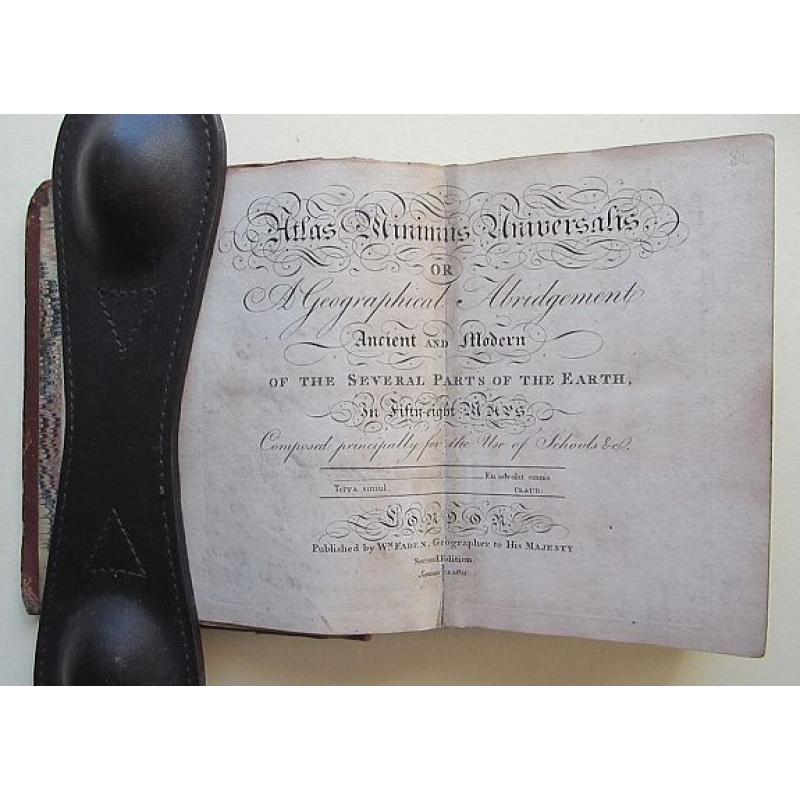 Atlas Minimus Universalis,
OR
A Geographical Abridgement
Ancient AND Modern
OF THE SEVERAL PARTS OF THE EARTH,
In Fifty-eight MAPS
Composed principally for the Use of Schools &c.
En advolet omnis
Terra simul. CLAUD.
LONDON:
Published by Wm. FADEN, Geographer to His MAJESTY
Second Edition.